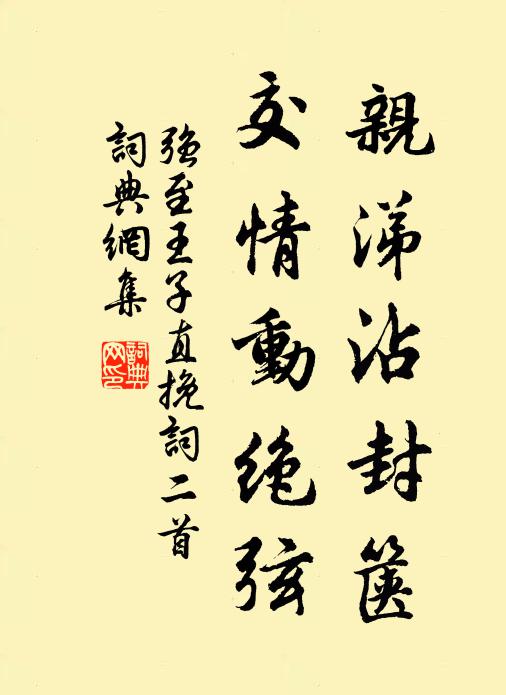 親涕沾封篋
交情動絶弦
強至王子直挽詞二首
詞典網集
詞典網印